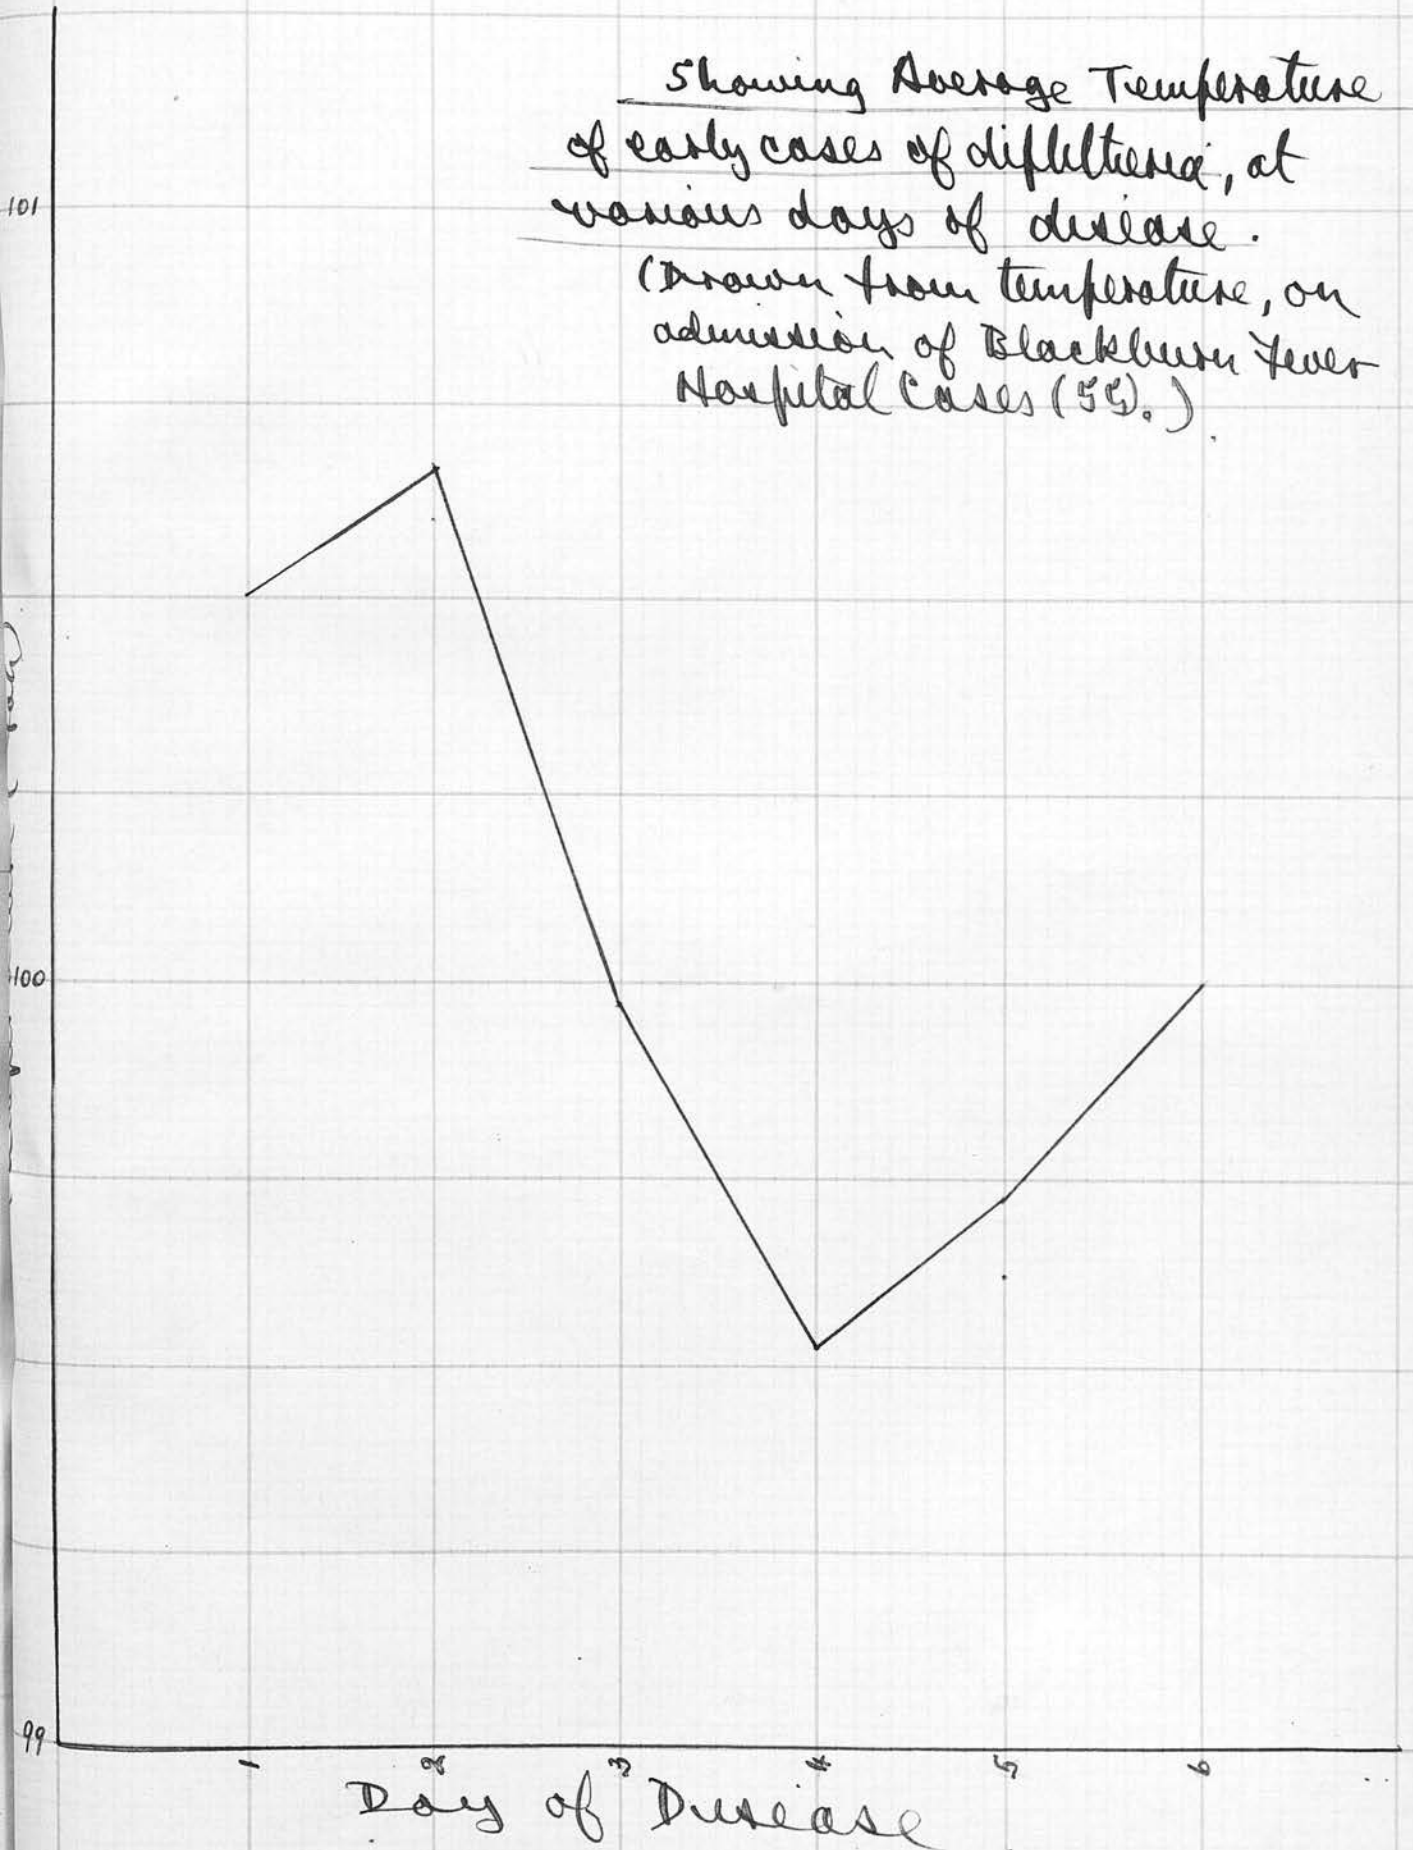 Showing Average Temperature
of early cases of diphtheria, at
various days of disease.
(Drawn from temperature, on
admission of Blackburn Fever
Hospital Cases (55).)
101
100
99
1 2 3 4 5 6
Day of Disease